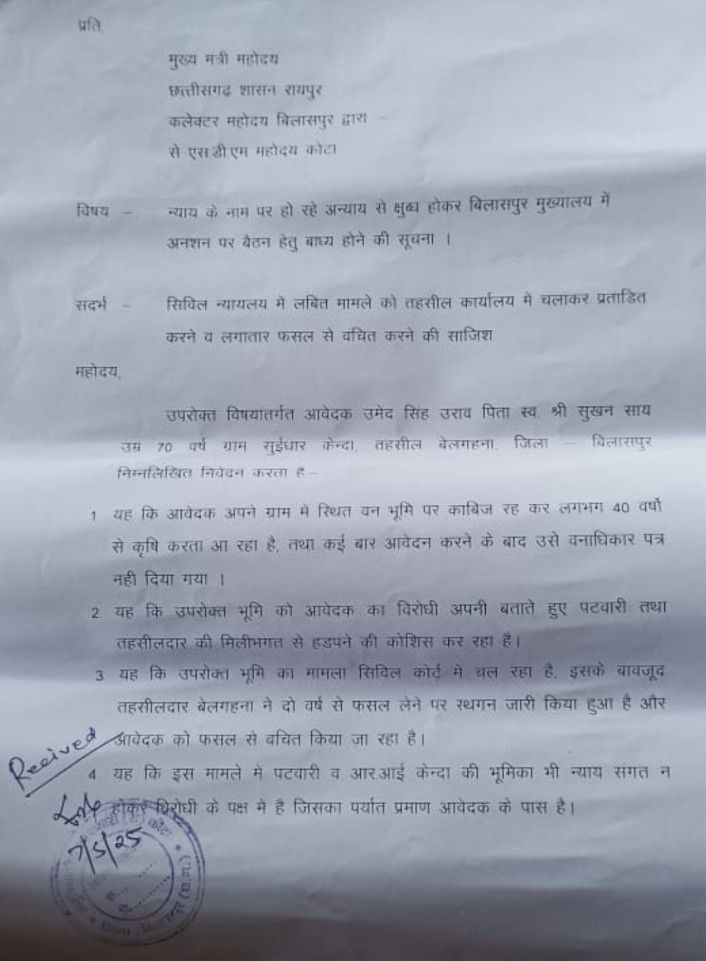 प्रति,
मुख्य मत्री महोदय
छत्तीसगढ शासन रायपुर
कलेक्टर महोदय बिलासपुर द्वारा –
से एस.डी.एम महोदय कोटा
विषय – न्याय के नाम पर हो रहे अन्याय से क्षुब्ध होकर बिलासपुर मुख्यालय में
अनशन पर बैठन हेतु बाध्य होने की सूचना ।
सदर्भ – सिविल न्यायलय मे लबित मामले को तहसील कार्यालय मे चलाकर प्रताडित
करने व लगातार फसल से वचित करने की साजिश
महोदय,
उपरोक्त विषयातर्गत आवेदक उमेद सिंह उराव पिता स्व. श्री सुखन साय
उम्र 70 वर्ष ग्राम सुईधार केन्दा, तहसील बेलगहना, जिला – बिलासपुर
निम्नलिखित निवेदन करता है –
1 यह कि आवेदक अपने ग्राम मे स्थित वन भूमि पर काबिज रह कर लगभग 40 वर्षो
से कृषि करता आ रहा है, तथा कई बार आवेदन करने के बाद उसे वनाधिकार पत्र
नही दिया गया ।
2 यह कि उपरोक्त भूमि को आवेदक का विरोधी अपनी बताते हुए पटवारी तथा
तहसीलदार की मिलीभगत से हडपने की कोशिस कर रहा है।
3 यह कि उपरोक्त भूमि का मामला सिविल कोर्ट मे चल रहा है, इसके बावजूद
तहसीलदार बेलगहना ने दो वर्ष से फसल लेने पर स्थगन जारी किया हुआ है और
आवेदक को फसल से वचित किया जा रहा है।
4 यह कि इस मामले में पटवारी व आरआई केन्दा की भूमिका भी न्याय संगत न
होकर विरोधी के पक्ष में है जिसका पर्यात प्रमाण आवेदक के पास है।
Recived
7/5/25
कोटा
(छ.ग.)